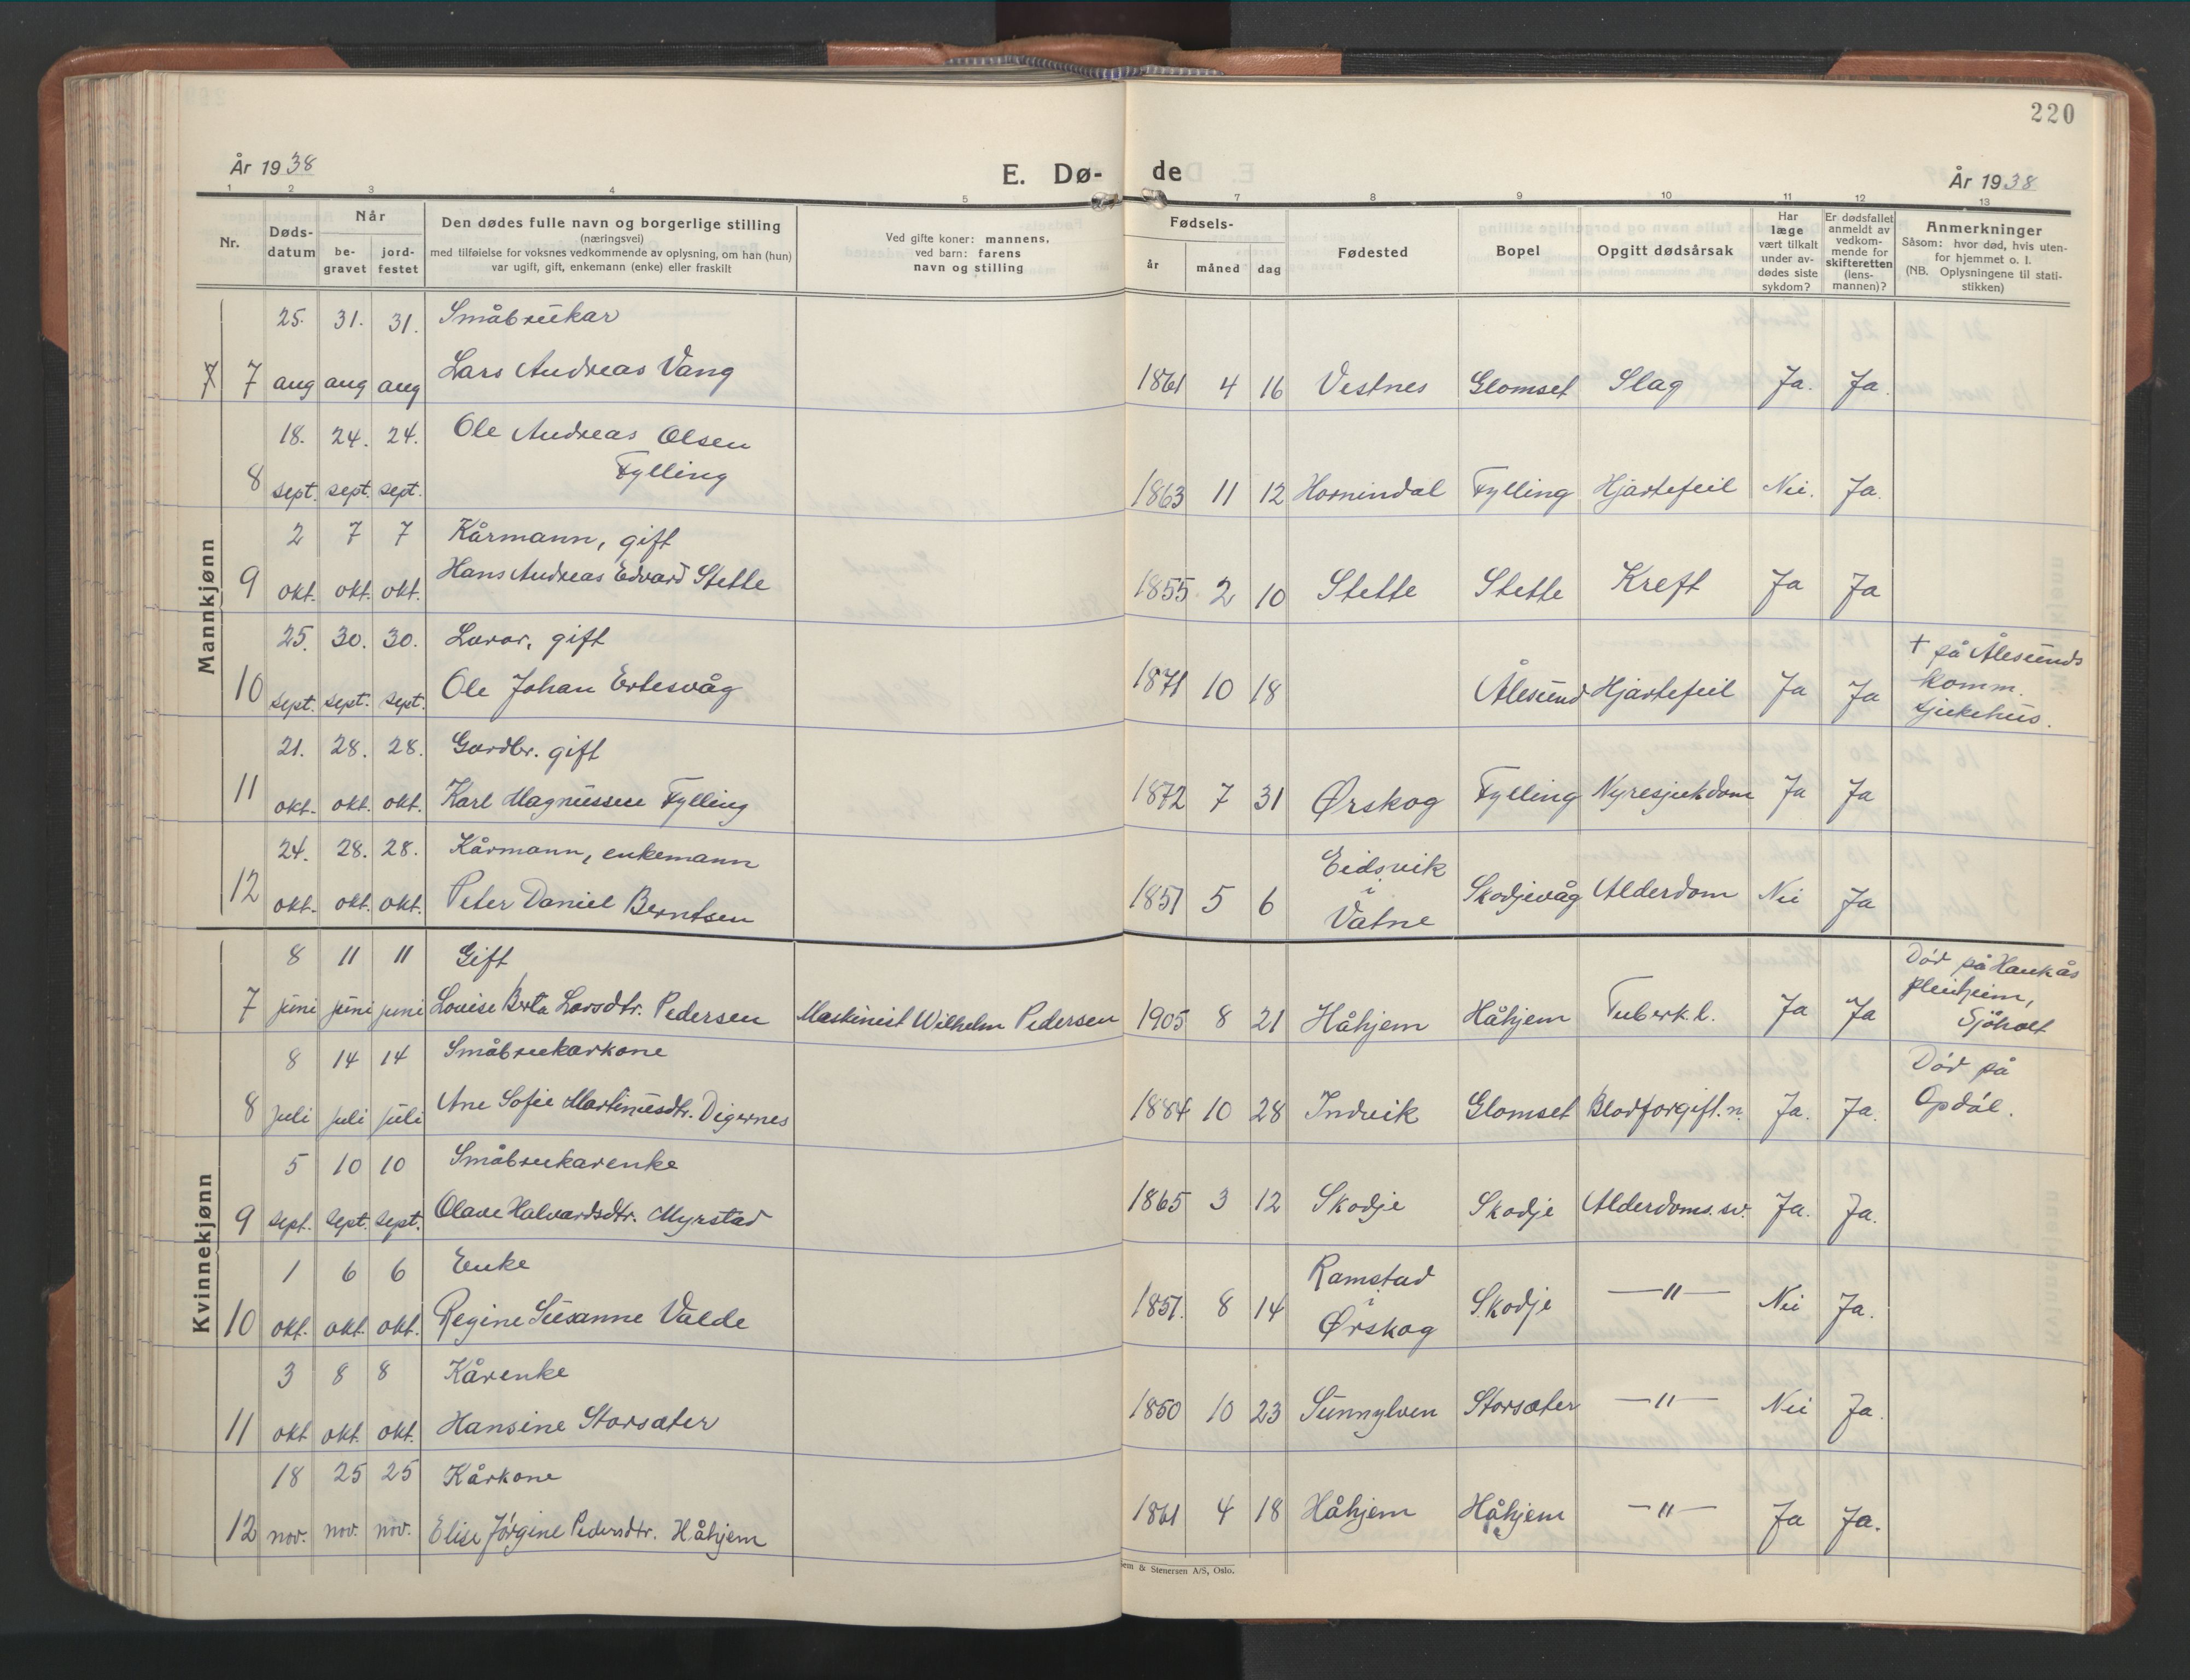 220
År 1938
E. Dø-
de
År 1938
1 2 3 4 5 7 8 9 10 11 12 13
Nr.
Døds-
datum
Når
be-
gravet
jord-
festet
Den dødes fulle navn og borgerlige stilling
(næringsvei)
med tilføielse for voksnes vedkommende av oplysning, om han (hun)
var ugift, gift, enkemann (enke) eller fraskilt
Ved gifte koner: mannens,
ved barn: farens
navn og stilling
Fødsels-
år måned dag
Fødested
Bopel
Opgitt dødsårsak
Har
læge
vært tilkalt
under av-
dødes siste
sykdom?
Er dødsfallet
anmeldt av
vedkom-
mende for
skifteretten
(lens-
mannen)?
Anmerkninger
Såsom: hvor død, hvis uten-
for hjemmet o. l.
(NB. Oplysningene til stati-
stikken)
Mannkjønn
25. 31. 31. Småbrukar
7 7 aug aug aug Lars Andreas Vang 1861 4 16 Vestnes Glomset Slag Ja. Ja.
18. 24. 24. Ole Andreas Olsen
8 sept. sept. sept. Fylling 1863 11 12 Hornindal Fylling Hjartefeil Nei. Ja.
2 7 7 Kårmann, gift
9 okt. okt. okt. Hans Andreas Edvard Stette 1855 2 10 Stette Stette Kreft Ja Ja
25. 30. 30. Lærar, gift
10 sept. sept. sept. Ole Johan Ertesvåg 1871 10 18 Ålesund Hjartefeil Ja Ja
+ på Ålesunds
komm.
sjukehus.
21. 28. 28. Gardbr. gift
11 okt. okt. okt. Karl Magnussen Fylling 1872 7 31 Ørskog Fylling Nyresjukdom Ja Ja
24. 28. 28. Kårmann, enkemann
12 okt. okt. okt. Peter Daniel Berntsen 1851 5 6 Eidsvik
i
Vatne Skodjevåg Alderdom Nei Ja
Kvinnekjønn
8 11 11 Gift
7 juni juni juni Louise Berta Larsdtr. Pedersen Maskinist Wilhelm Pedersen 1905 8 21 Håhjem Håhjem Tuberk.l. Ja Ja
Död på Haukås
pleiheim,
Sjöholt
8 14 14 Småbrukarkone
8 juli juli juli Ane Sofie Martinusdtr. Digernes 1884 10 28 Indvik Glomset Blodforgift.n. Ja. Ja.
Död på
Opdöl.
5 10 10 Småbrukarenke
9 sept. sept. sept. Olave Halvardsdtr. Myrstad 1865 3 12 Skodje Skodje Alderdoms.sv. Ja. Ja.
1 6 6 Enke
10 okt. okt. okt. Regine Susanne Valde 1851. 8 14 Ramstad
i
Ørskog Skodje —"— Nei Ja.
3 8 8 Kårenke
11 okt okt. okt. Hansine Storsæter 1850 10 23 Sunnylven Storsæter —"— Nei Ja.
18 25 25 Kårkone
12 nov. nov. nov. Elise Jörgine Pedersdtr. Håhjem 1861 4 18 Håhjem Håhjem —"— Ja Ja.
& Stenersen A/S, Oslo.